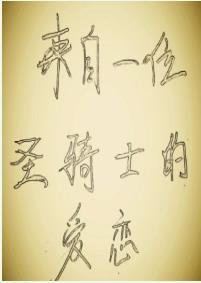 来自一位
圣骑士的
爱恋